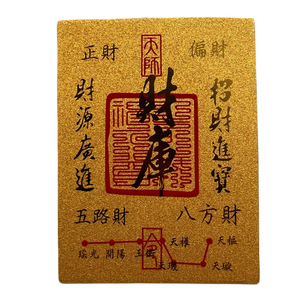 天師
正財
偏財
財庫
招財進寶
財源廣進
五路財
八方財
瑤光 開陽 玉衡 天權 天樞
天璣 天璇